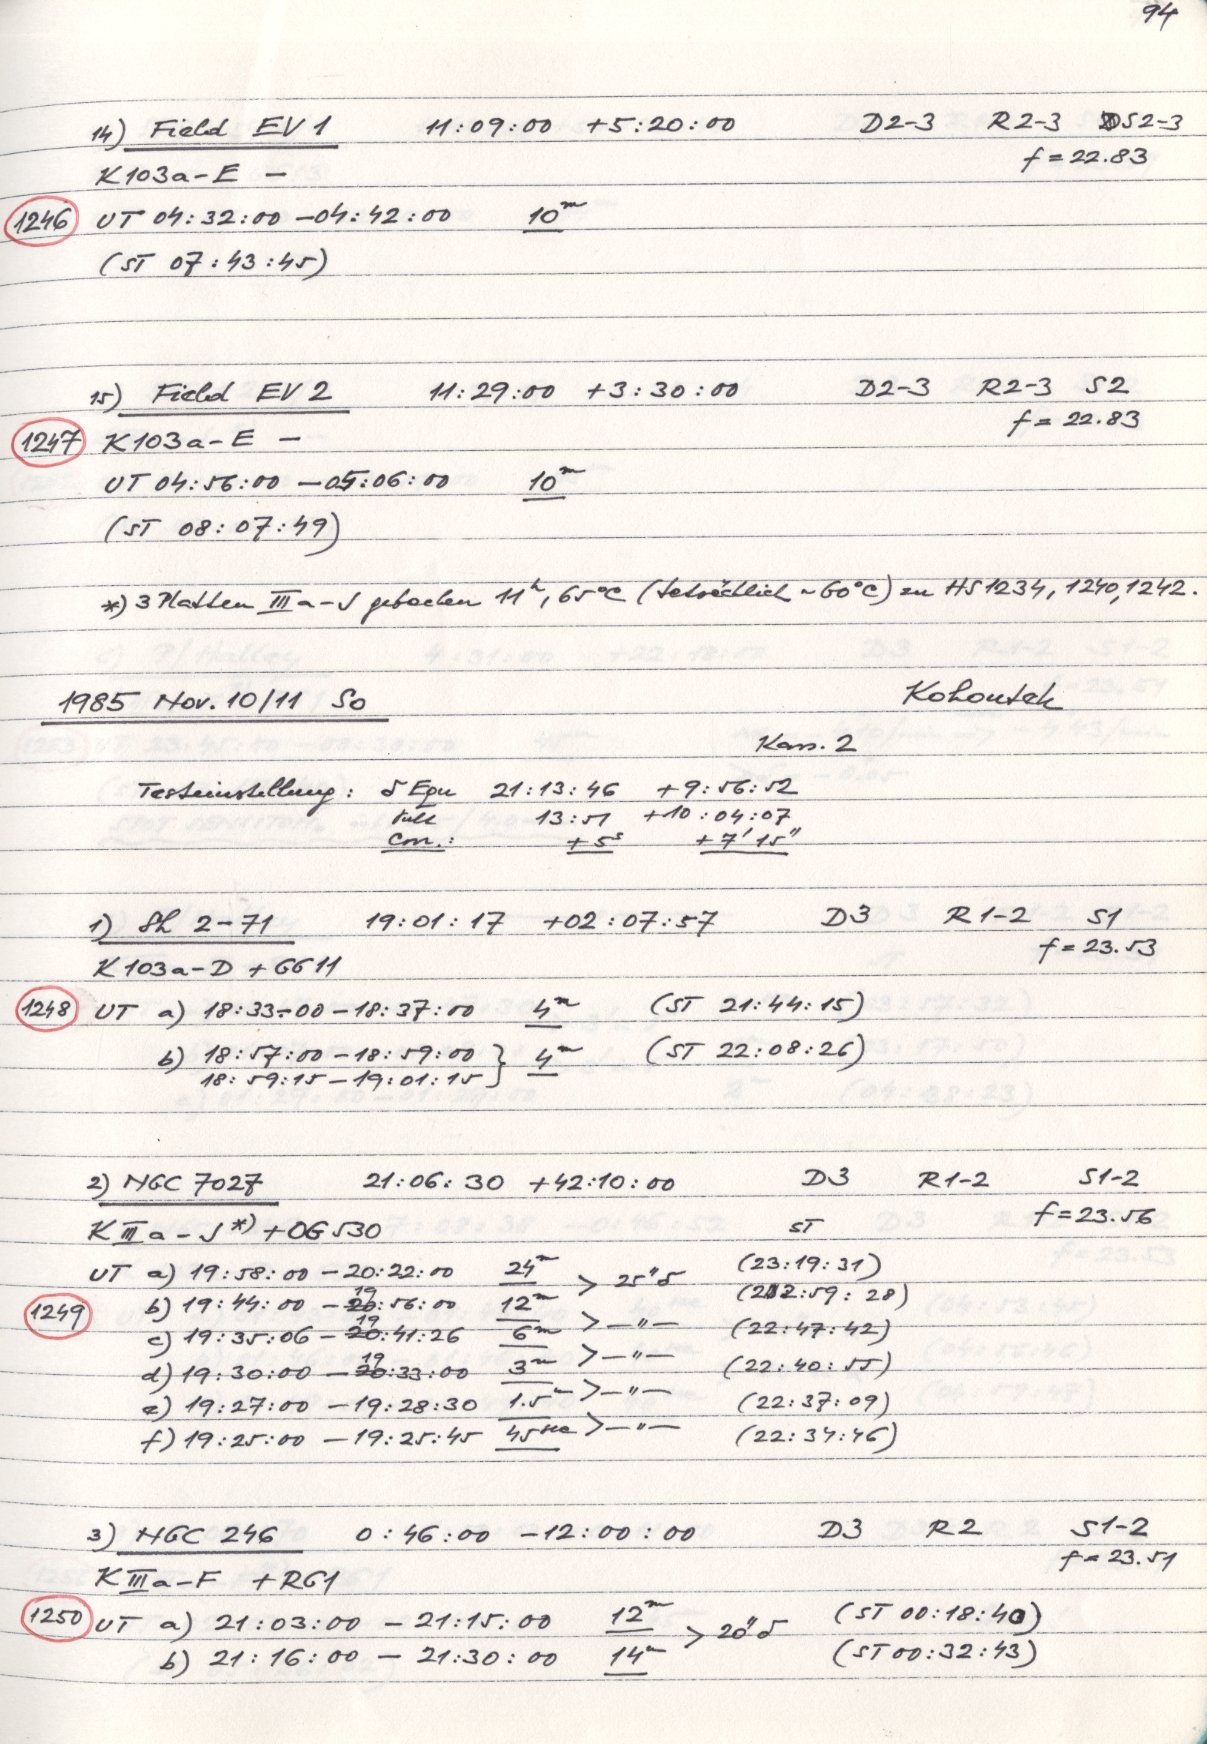 94
14) Field EV 1 11:09:00 +5:20:00 D2-3 R2-3 S2-3
f = 22.83
K103a-E -
1246 UT 04:32:00 - 04:42:00 10m
(ST 07:43:45)
15) Field EV 2 11:29:00 +3:30:00 D2-3 R2-3 S2
f = 22.83
1247 K103a-E -
UT 04:56:00 - 05:06:00 10m
(ST 08:07:49)
*) 3 Platten IIIa-J gebacken 11h, 65°C (tatsächlich ~60°C) zu HS 1234, 1240, 1242.
1985 Nov. 10/11 So Kohoutek
Kass. 2
Testeinstellung: δ Equ 21:13:46 +9:56:52
13:51 +10:04:07
Corr.: +5s +7'15"
1) Sh 2-71 19:01:17 +02:07:57 D3 R1-2 S1
f = 23.53
K103a-D + GG11
1248 UT a) 18:33:00 - 18:37:00 4m (ST 21:44:15)
b) 18:57:00 - 18:59:00 } 4m (ST 22:08:26)
18:59:15 - 19:01:15
2) NGC 7027 21:06:30 +42:10:00 D3 R1-2 S1-2
f = 23.56
K IIIa-J *) + OG530 ST
UT a) 19:58:00 - 20:22:00 24m > 25"δ (23:19:31)
1249 b) 19:44:00 - 19:56:00 12m > -"- (22:59:28)
c) 19:35:06 - 19:41:26 6m > -"- (22:47:42)
d) 19:30:00 - 19:33:00 3m > -"- (22:40:55)
e) 19:27:00 - 19:28:30 1.5m > -"- (22:37:09)
f) 19:25:00 - 19:25:45 45sec (22:34:46)
3) NGC 246 0:46:00 -12:00:00 D3 R2 S1-2
f = 23.51
K IIIa-F + RG1
1250 UT a) 21:03:00 - 21:15:00 12m > 20"δ (ST 00:18:40)
b) 21:16:00 - 21:30:00 14m (ST 00:32:43)